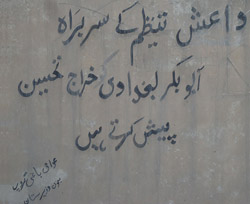 داعش تنظیم کے سربراہ
ابو بکر بغدادی کو خراج تحسین
پیش کرتے ہیں